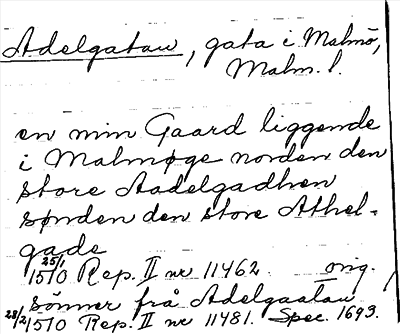 Adelgatan, gata i Malmö,
Malm. l.
en min Gaard liggende
i Malmøge norden den
store Aadelgadhen
sønden den store Athel-
gade
25/1 1510 Rep. II nr 11462. orig.
sönner frå Adelgaatan
28/2 1510 Rep. II nr 11481. Spec. 1693.